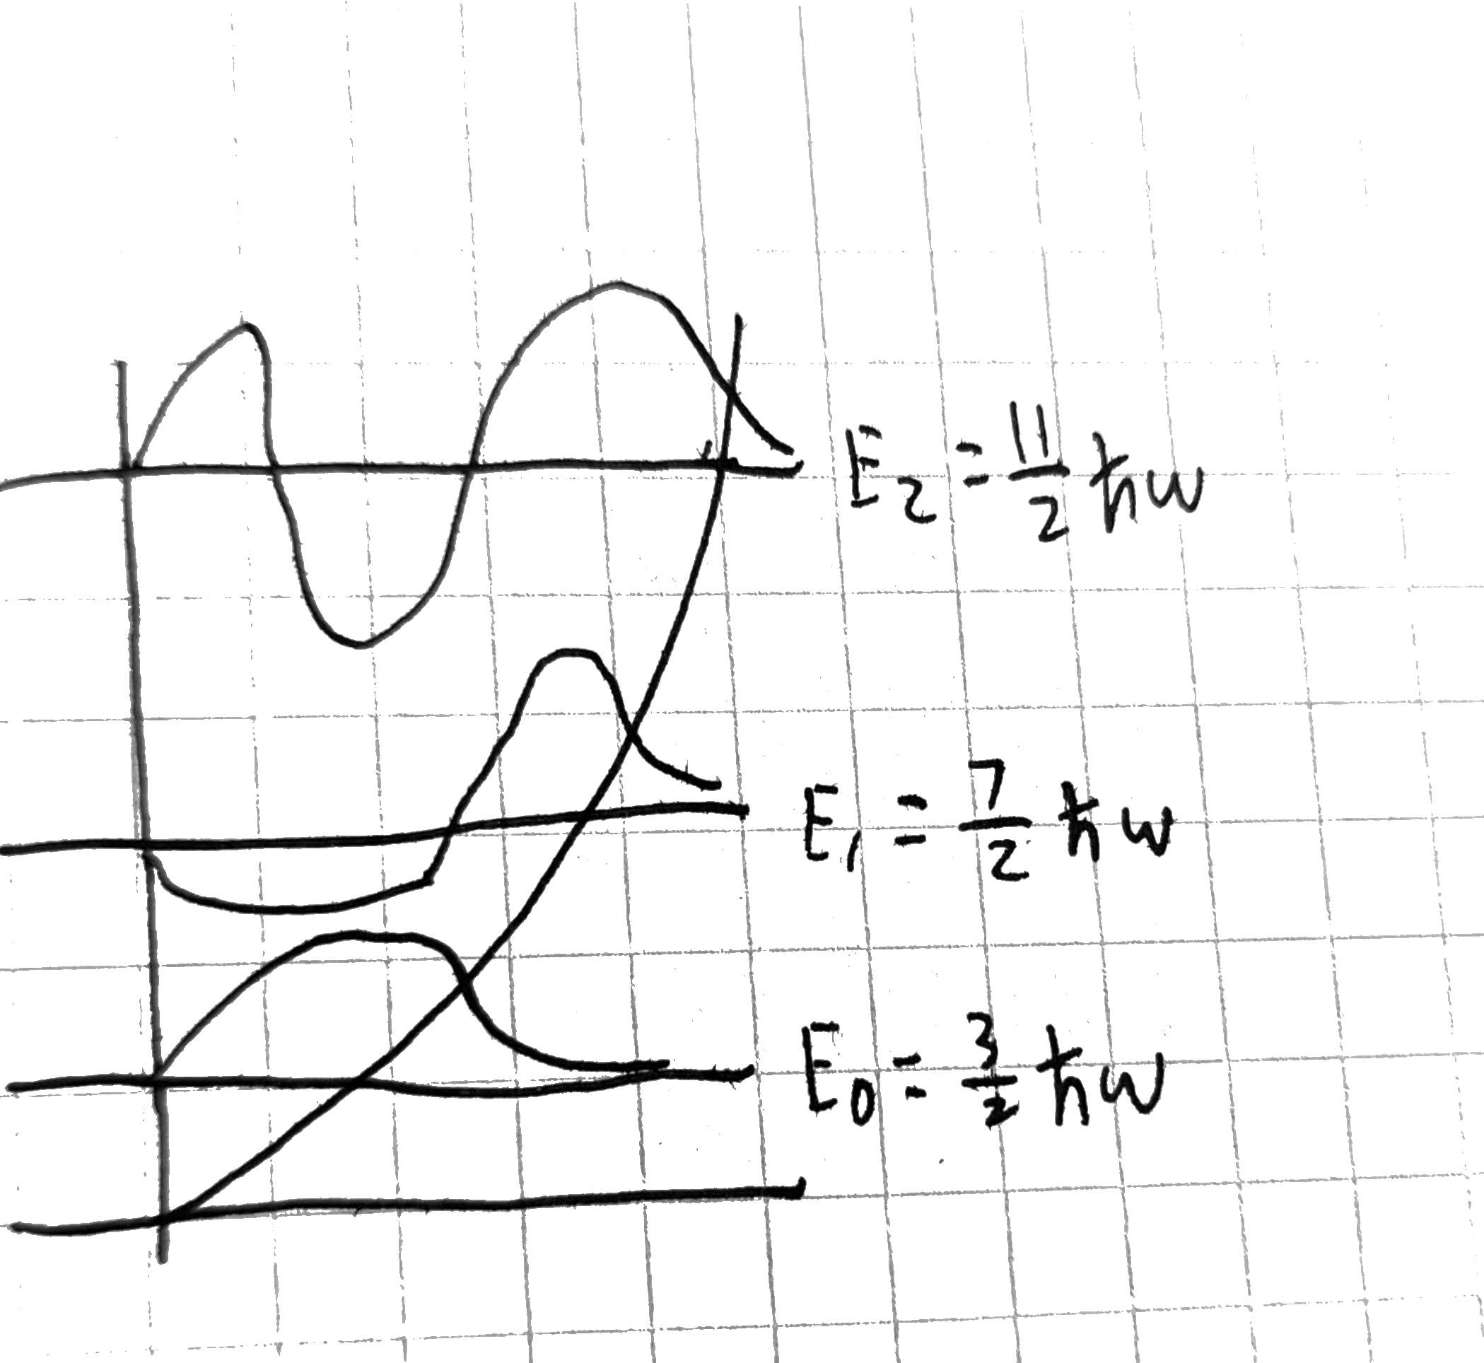 E₂ = 11/2 ħω
E₁ = 7/2 ħω
E₀ = 3/2 ħω